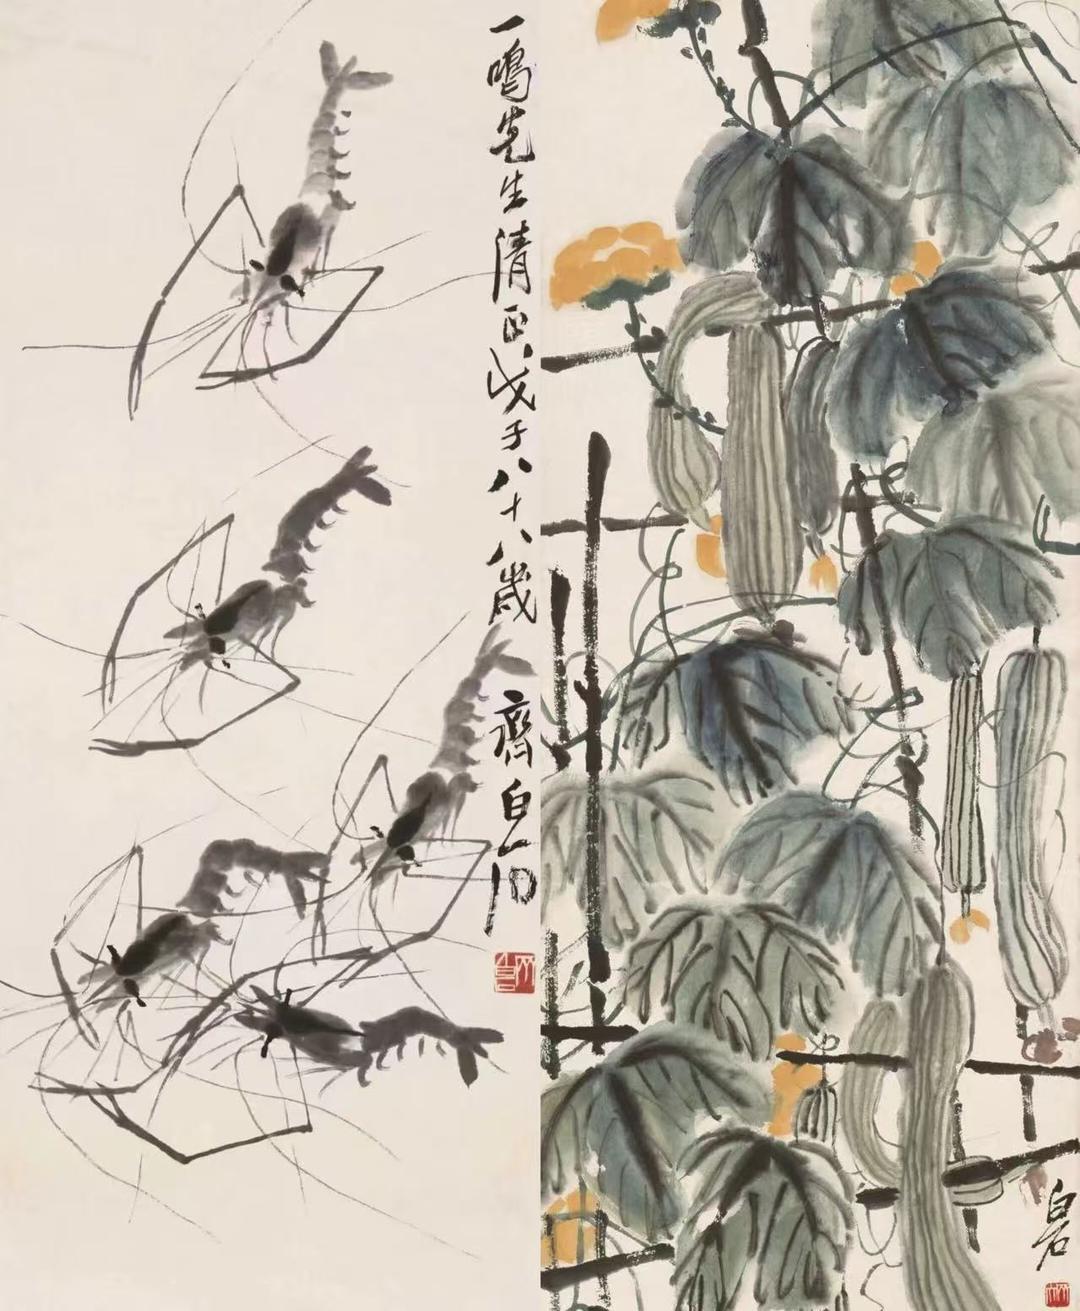 一鳴先生清正戊子八十八歲
齊白石
白石